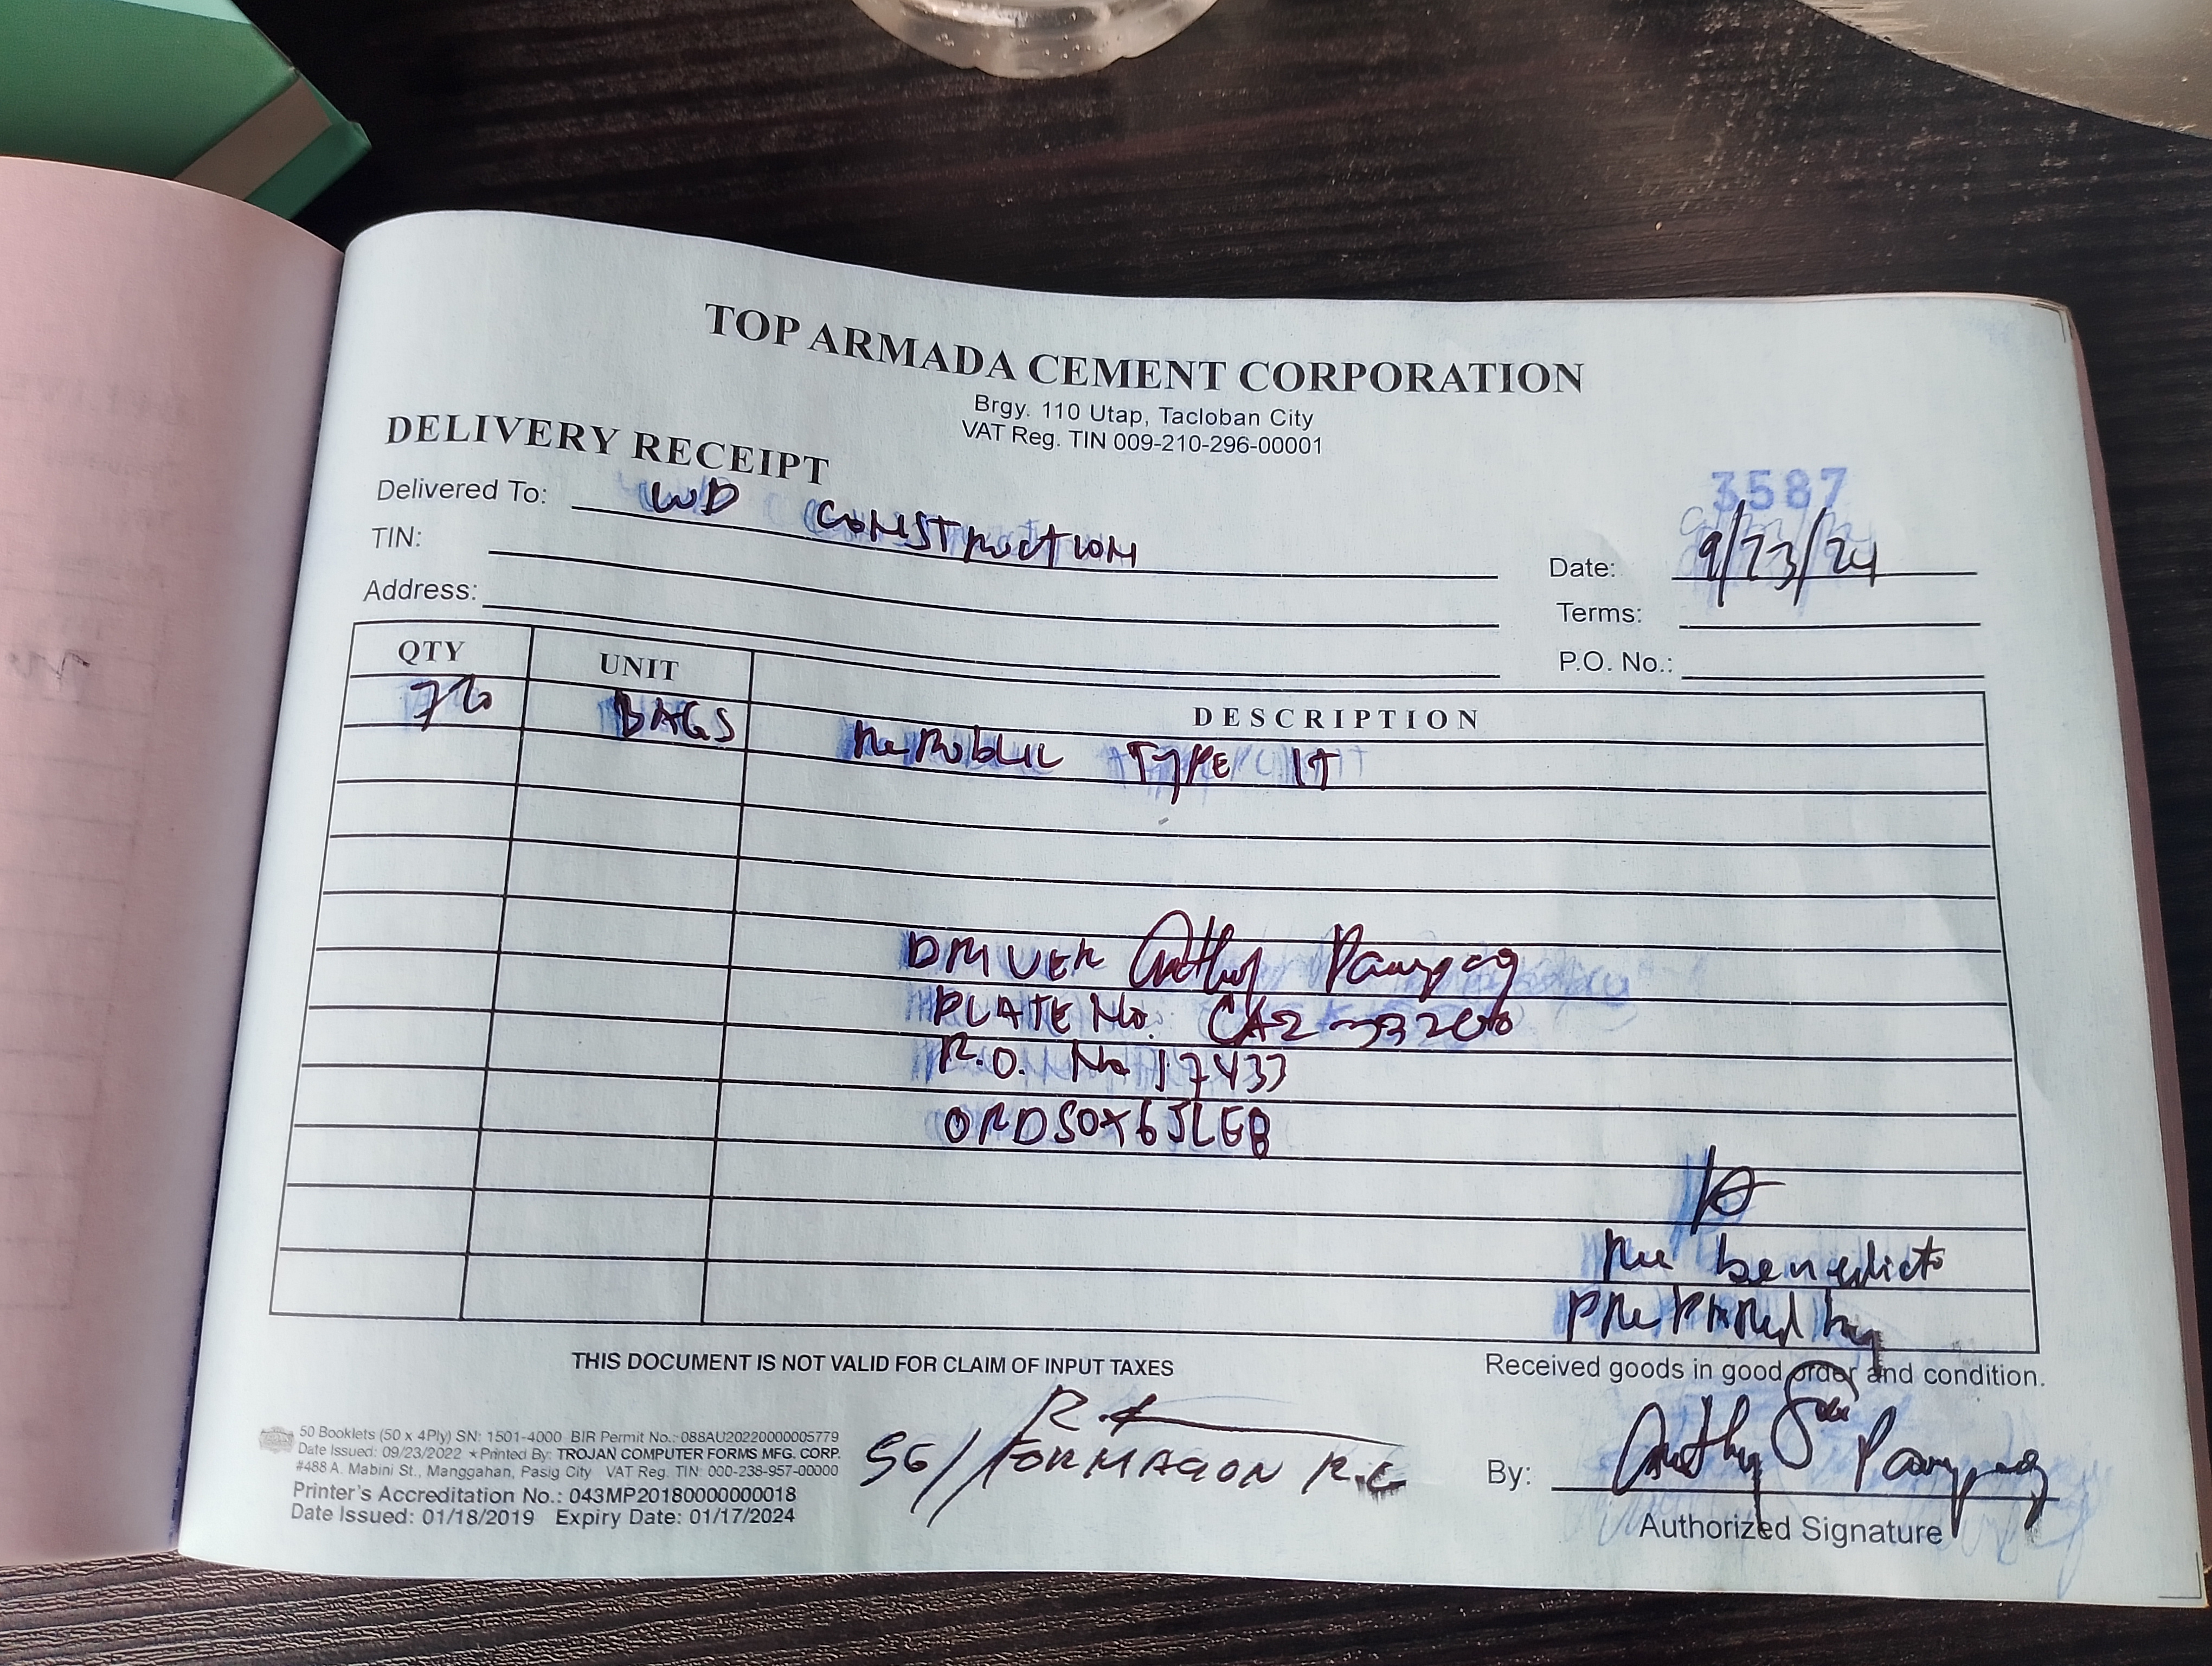 TOP ARMADA CEMENT CORPORATION
Brgy. 110 Utap, Tacloban City
VAT Reg. TIN 009-210-296-00001
DELIVERY RECEIPT
3587
Delivered To: WD CONSTRUCTION
Date: 9/23/24
TIN:
Terms:
Address:
P.O. No.:
QTY UNIT DESCRIPTION
BAGS REPUBLIC TYPE 1T
DRIVER Anthony
PLATE No.
R.O. No 17433
ORDSOX6JLEB
benedicto
PREPARED by
THIS DOCUMENT IS NOT VALID FOR CLAIM OF INPUT TAXES
Received goods in good order and condition.
50 Booklets (50 x 4Ply) SN: 1501-4000 BIR Permit No.: 088AU20220000005779
Date Issued: 09/23/2022 ★ Printed By: TROJAN COMPUTER FORMS MFG. CORP.
#488 A. Mabini St., Manggahan, Pasig City VAT Reg. TIN: 000-238-957-00000
Printer's Accreditation No.: 043MP20180000000018
Date Issued: 01/18/2019 Expiry Date: 01/17/2024
SG/ FORMAGON R.C
By:
Authorized Signature